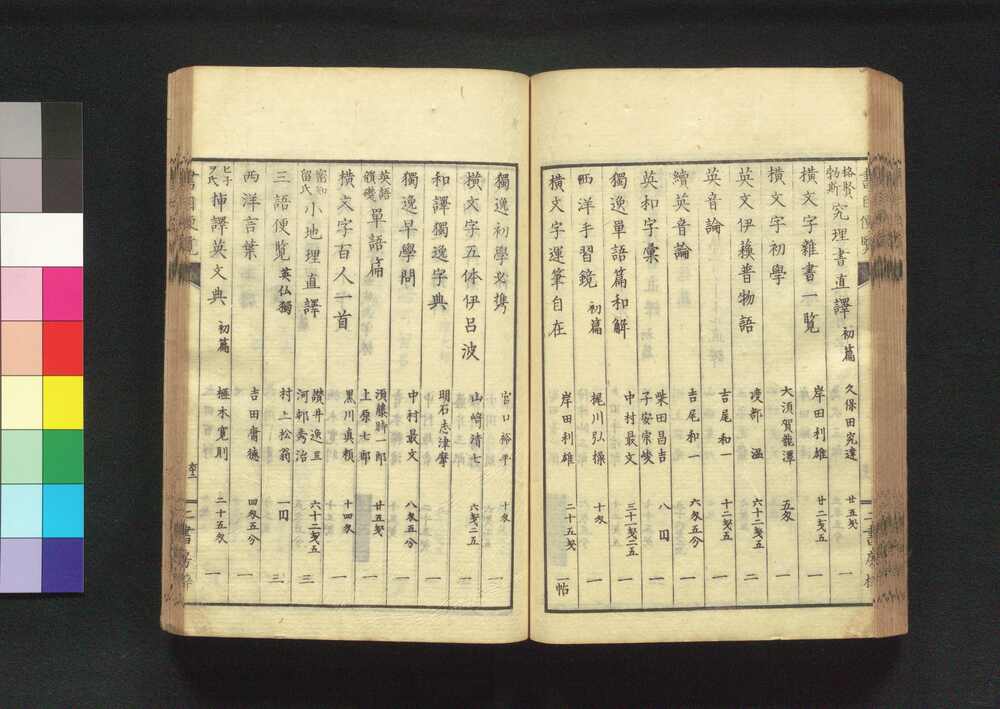 格賢勃斯 究理書直譯 初篇 久保田究達 廿五匁 一
橫文字雜書一覧 岸田利雄 廿二匁五 一
橫文字初學 大須賀龍潭 五匁 一
英文伊蘇普物語 渡部 温 六十二匁五 二
英音論 吉尾和一 十二匁五 一
續英音論 吉尾和一 六匁五分 一
英和字彙 柴田昌吉 子安宗峻 八円 一
獨逸單語篇和解 中村最文 三十一匁二五 一
西洋手習鏡 初篇 梶川弘操 十匁 一
橫文字運筆自在 岸田利雄 二十五匁 一帖
獨逸初學必携 宮口裕平 十匁 一
橫文字五体伊呂波 山﨑清七 六匁二五 一
和譯獨逸字典 明石志津摩 一
獨逸早學問 中村最文 八匁五分 一
英語 單語篇 須藤時一郎 上原七郎 廿五匁 一
橫文字百人一首 黒川真頼 十四匁 一
小地理直譯 讃井逸三 河邨秀治 六十二匁五 三
三語便覧 英仏獨 村上松翁 一円 三
西洋言葉 吉田庸德 四匁五分 一
ヒ子ヲ氏 挿譯英文典 初篇 櫃木寛則 二十五匁 一
書目便覧
二書房梓